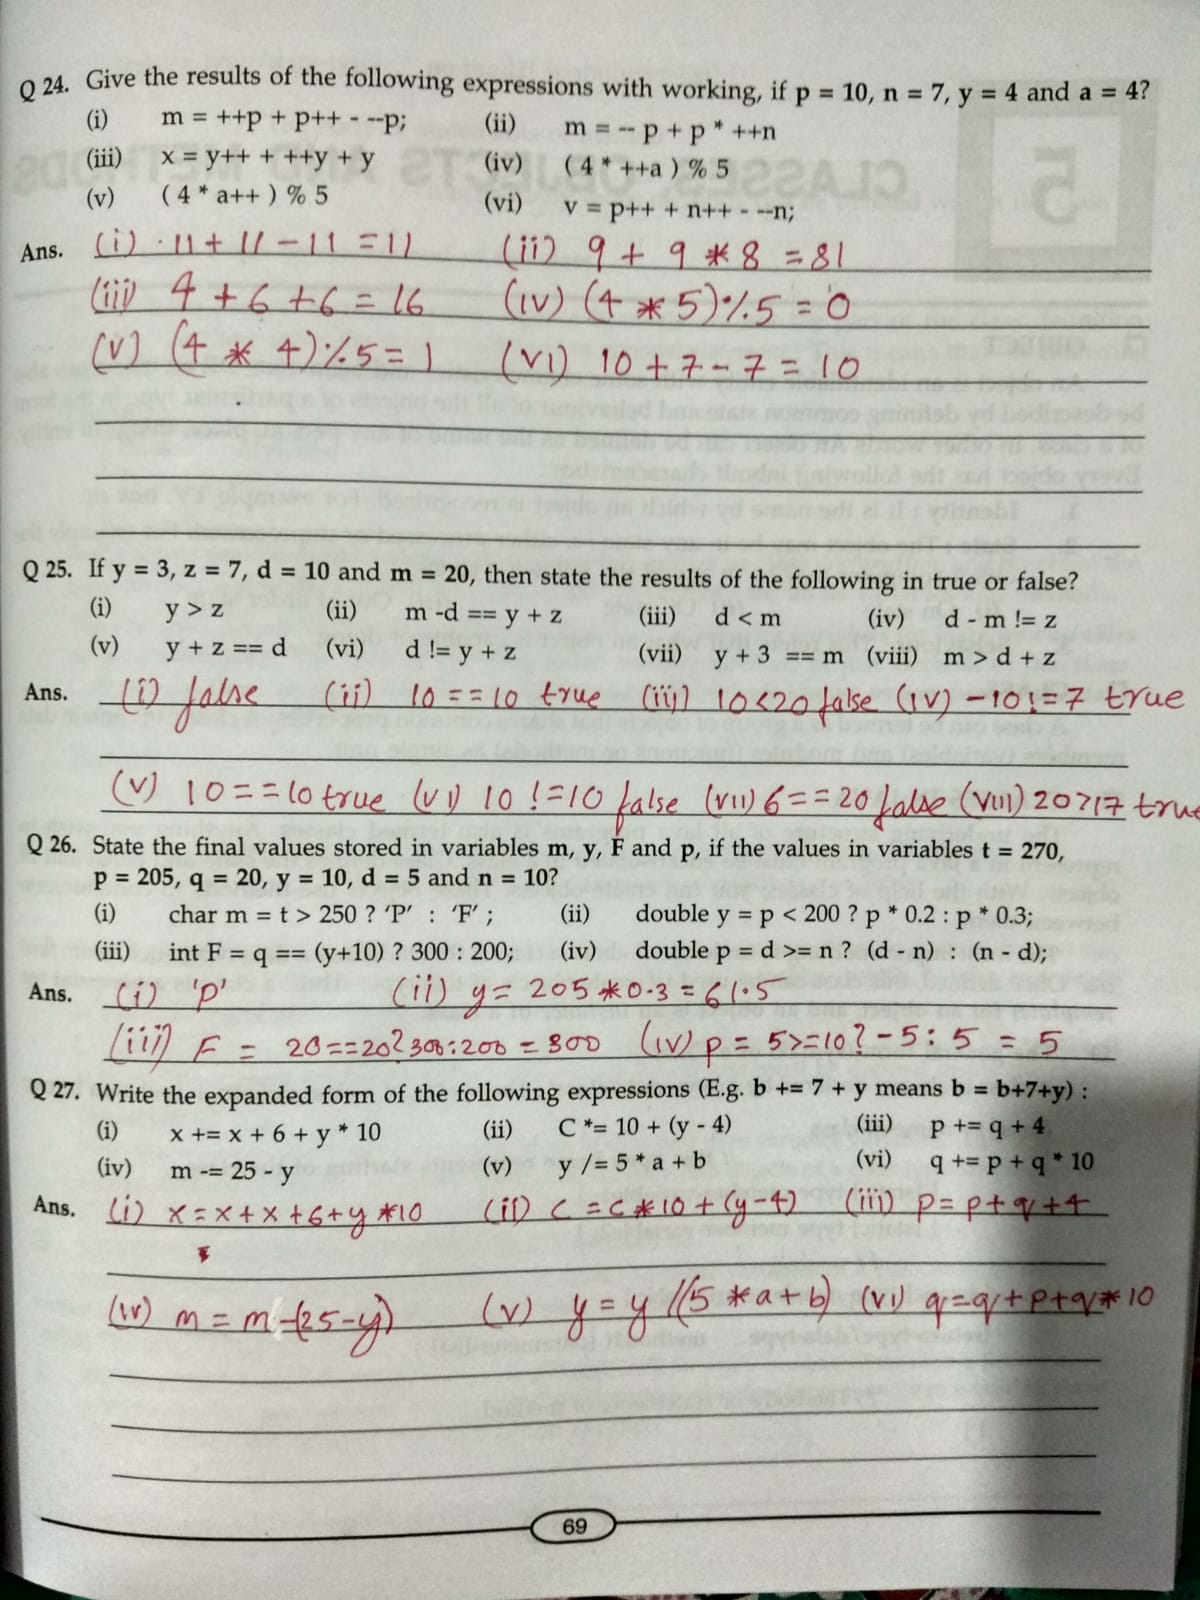 Q 24. Give the results of the following expressions with working, if p = 10, n = 7, y = 4 and a = 4?
(i) m = ++p + p++ - --p; (ii) m = -- p + p * ++n
(iii) x = y++ + ++y + y (iv) ( 4 * ++a ) % 5
(v) ( 4 * a++ ) % 5 (vi) v = p++ + n++ - --n;
Ans. (i) 11 + 11 - 11 = 11 (ii) 9 + 9 * 8 = 81
(iii) 4 + 6 + 6 = 16 (iv) (4 * 5) % 5 = 0
(v) (4 * 4) % 5 = 1 (vi) 10 + 7 - 7 = 10
Q 25. If y = 3, z = 7, d = 10 and m = 20, then state the results of the following in true or false?
(i) y > z (ii) m -d == y + z (iii) d < m (iv) d - m != z
(v) y + z == d (vi) d != y + z (vii) y + 3 == m (viii) m > d + z
Ans. (i) false (ii) 10 == 10 true (iii) 10<20 false (iv) -10 != 7 true
(v) 10 == 10 true (vi) 10 != 10 false (vii) 6 == 20 false (viii) 20>17 true
Q 26. State the final values stored in variables m, y, F and p, if the values in variables t = 270,
p = 205, q = 20, y = 10, d = 5 and n = 10?
(i) char m = t > 250 ? 'P' : 'F' ; (ii) double y = p < 200 ? p * 0.2 : p * 0.3;
(iii) int F = q == (y+10) ? 300 : 200; (iv) double p = d >= n ? (d - n) : (n - d);
Ans. (i) 'p' (ii) y = 205 * 0.3 = 61.5
(iii) F = 20==20? 300:200 = 300 (iv) p = 5>=10? -5 : 5 = 5
Q 27. Write the expanded form of the following expressions (E.g. b += 7 + y means b = b+7+y) :
(i) x += x + 6 + y * 10 (ii) C *= 10 + (y - 4) (iii) p += q + 4
(iv) m -= 25 - y (v) y /= 5 * a + b (vi) q += p + q * 10
Ans. (i) x = x + x + 6 + y * 10 (ii) C = C * 10 + (y-4) (iii) p = p + q + 4
(iv) m = m - (25 - y) (v) y = y /(5 * a + b) (vi) q = q + p + q * 10
69